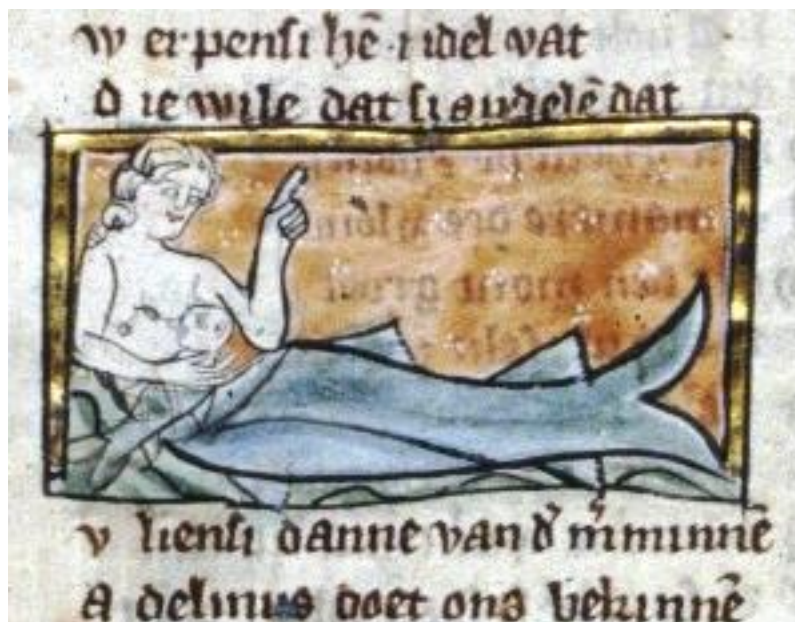 w erpensi hē .i. idel vat
D ie wile dat si andelē dat
v liensi danne van dˀ mˀminnē
A delinus doet ons bekinnē